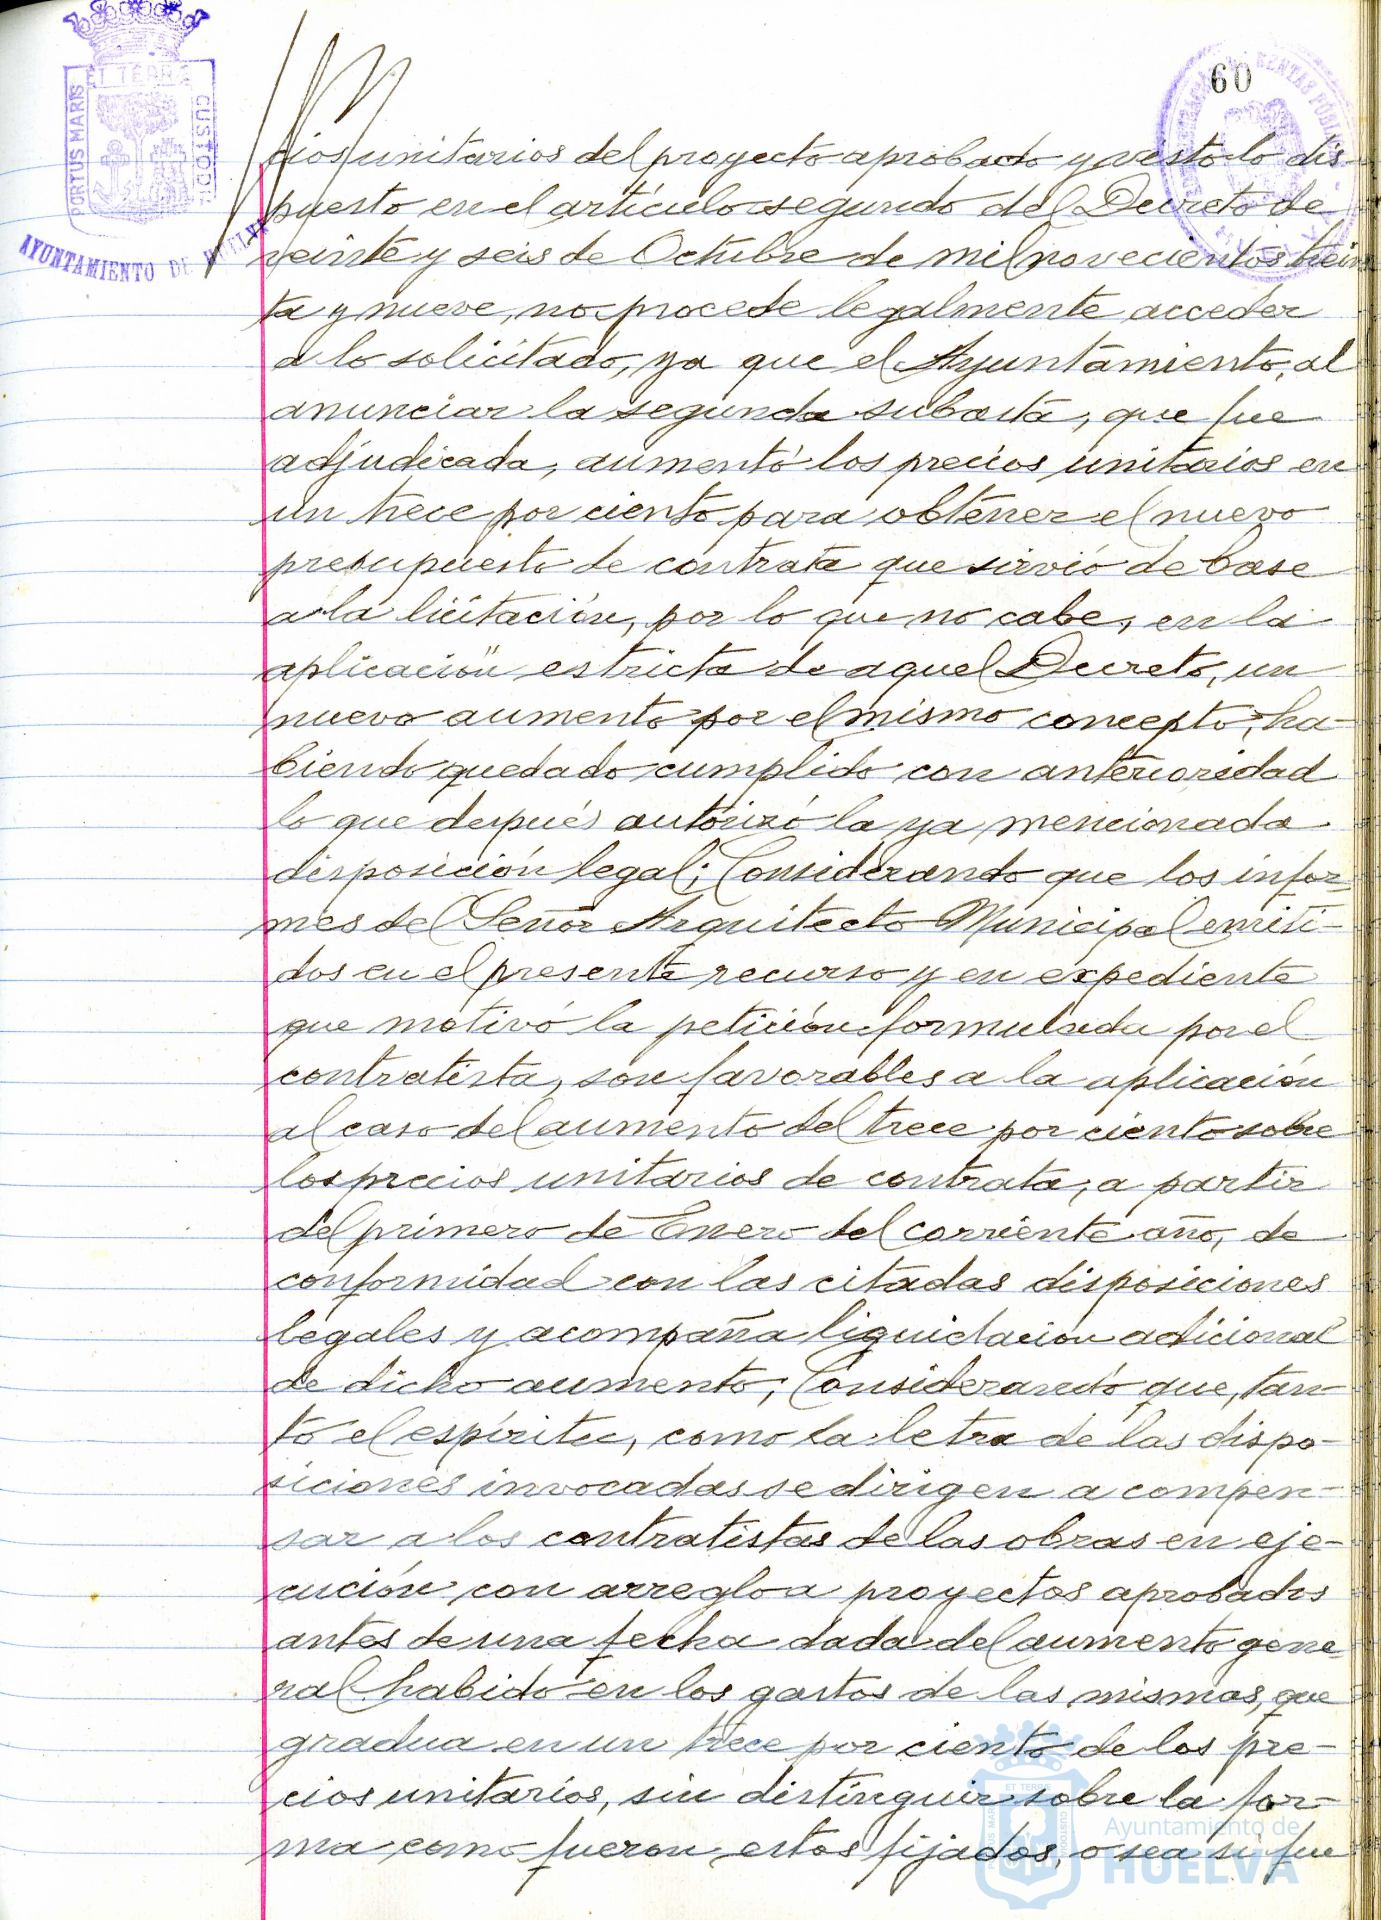 60
ET TERRÆ
PORTUS MARIS
CUSTODIA
AYUNTAMIENTO DE HUELVA
cios unitarios del proyecto aprobado y visto lo dis-
puesto en el artículo segundo del Decreto de
veinte y seis de Octubre de mil novecientos trein
ta y nueve, no procede legalmente acceder
a lo solicitado, ya que el Ayuntamiento, al
anunciar la segunda subasta, que fue
adjudicada, aumentó los precios unitarios en
un trece por ciento para obtener el nuevo
presupuesto de contrata que sirvió de base
a la licitación, por lo que no cabe, en la
aplicación estricta de aquel Decreto, un
nuevo aumento por el mismo concepto, ha-
biendo quedado cumplido con anterioridad
lo que después autorizó la ya mencionada
disposición legal; Considerando que los infor-
mes del Señor Arquitecto Municipal emiti-
dos en el presente recurso y en expediente
que motivó la petición formulada por el
contratista, son favorables a la aplicación
al caso del aumento del trece por ciento sobre
los precios unitarios de contrata, a partir
del primero de Enero del corriente año, de
conformidad con las citadas disposiciones
legales y acompaña liquidación adicional
de dicho aumento; Considerando que, tan-
to el espíritu, como la letra de las dispo-
siciones invocadas se dirigen a compen-
sar a los contratistas de las obras en eje-
cución con arreglo a proyectos aprobados
antes de una fecha dada del aumento gene-
ral habido en los gastos de las mismas, que
gradua en un trece por ciento de los pre-
cios unitarios, sin distinguir sobre la for-
ma como fueron estos fijados, o sea si fue
Ayuntamiento de
HUELVA